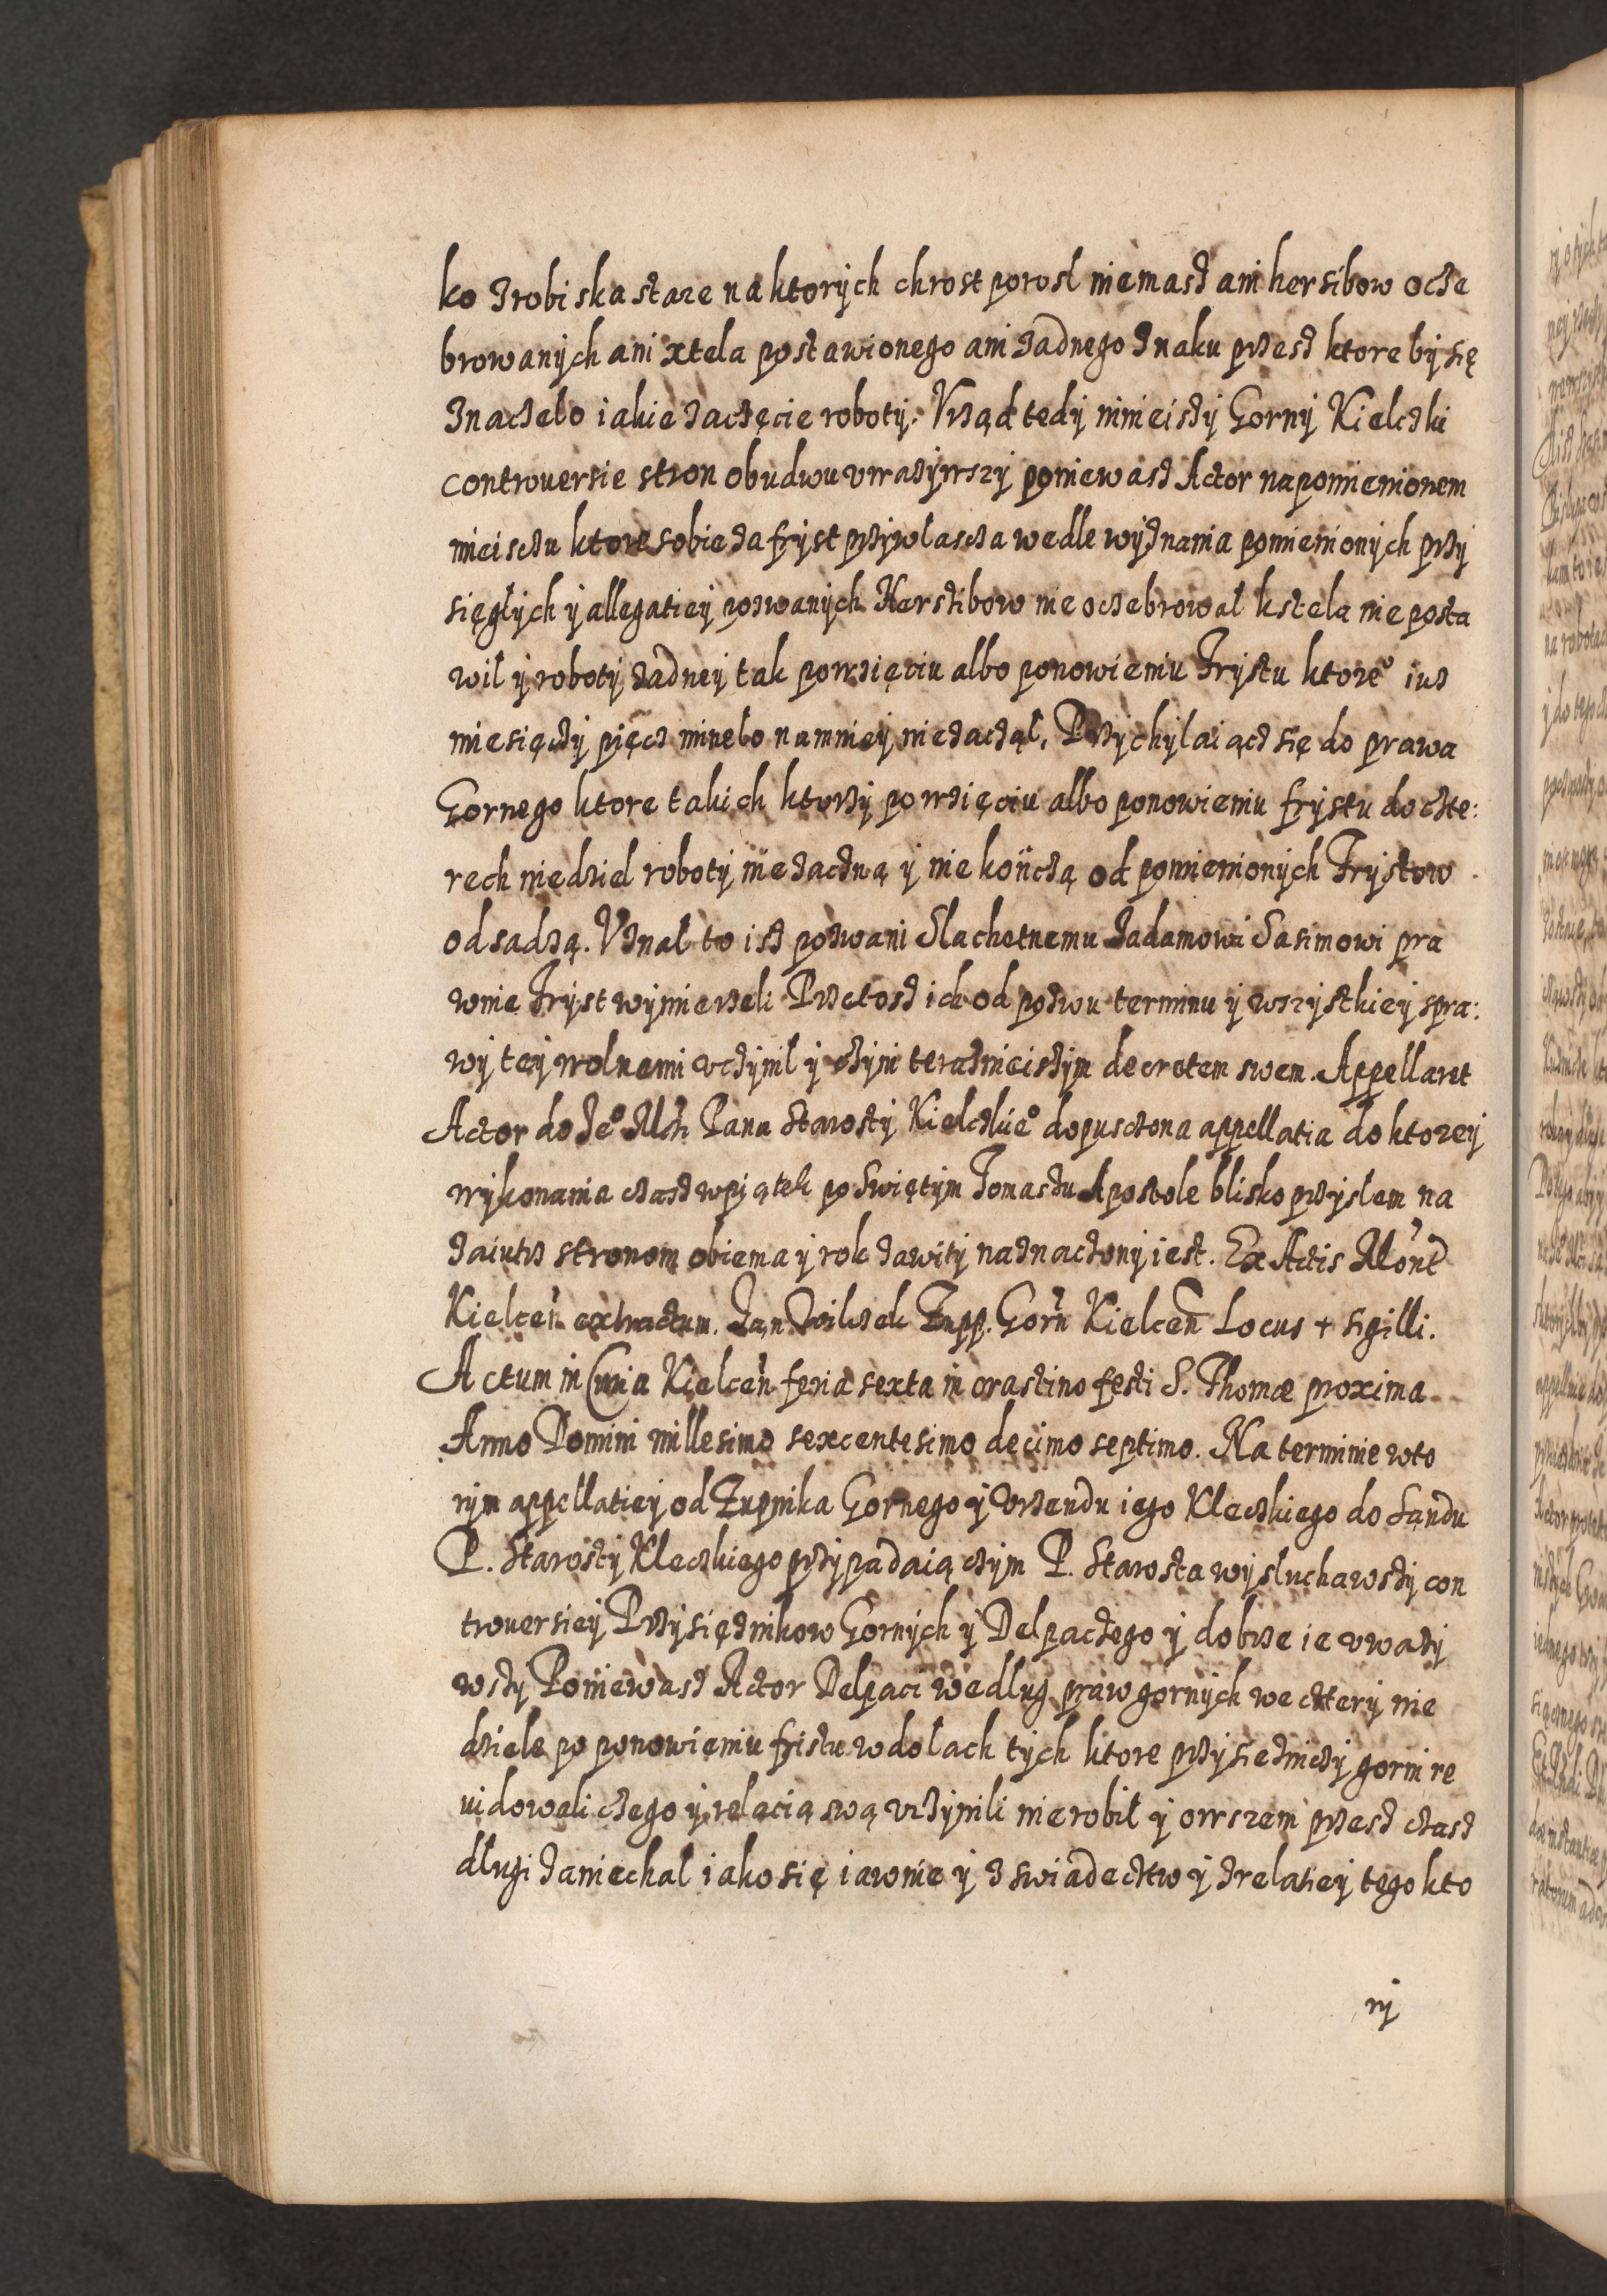 ko zrobiska stare na ktorych chrost porosl niemasz ani herstibow ocze
browanych ani xtela postawionego ani zadnego znaku przesz ktore by się
znaczelo iakie zaczęcie roboty. Vrząd tedy ninieiszy Gorny Kielczki
controuersie stron obudwu vwazywszy poniewasz Actor na pomienionem
mieisczu ktore sobie za fryst przywlascza wedle wyznania pomienionych przy
sięgłych y allegatiey pozwanych Herstibow nie oczebrowal kstela nie posta
wil y roboty zadney tak powzięciu albo ponowieniu Frystu ktore° iuz
miesięczy pięcz minelo namniey niezaczął, Przychylaiącz się do prawa
Gornego ktore takich ktorzy powzięciu albo ponowieniu frystu do czte:
rech niedziel roboty niezaczną y nie kończą od pomienionych Frystow
odsadzą. Vznal to isz pozwani Slachetnemu Jadamowi Sasimowi pra
wnie Fryst wymierzeli Przetosz ich od pozwu terminu y wszystkiey spra:
wy tey wolnemi vczynil y czyni terazmieiszym decretem swem. Appellaret
Actor do Je° Mczi Pana Starosty Kielczkie° dopusczona appellatia do ktorey
wykonania czasz wpiątek po Swiętym Tomaszu Apostole blisko przyslem na
zaiutrz stronom obiema y rok zawity naznaczony iest. Ex Actis Mont
Kielcen extractum. Jan Wilczek Zupp. Gorn Kielcen Locus + sigilli.
Actum in Curia Kielcen feria sexta in crastino festi S. Thomæ proxima
Anno Domini millesimo sexcentesimo decimo septimo. Na terminie wto
rym appellatiey od Zupnika Gornego y Vrzendu iego Kleczkiego do Sandu
P. Starosty Kleczkiego przypadaiączym P. Starosta wysluchawszy con
trouersiey Przysięznikow Gornych y Delpaczego y dobrze ie vwazy
wszy Poniewasz Actor Delpaci wedlug praw gornych we cztery nie
dziele po ponowieniu fristu wdolach tych ktore przysiezniczy gorni re
uidowali czego y relacią swą vczynili nierobil y owszem przesz czasz
dlugi zaniechal iako się iawnie y z swiadecztw y zrelatiey tego kto
ry